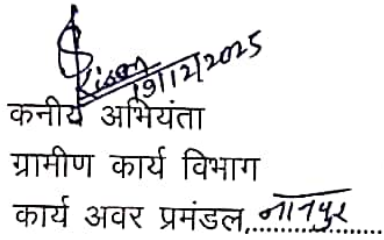 19/12/2025
कनीय अभियंता
ग्रामीण कार्य विभाग
कार्य अवर प्रमंडल,